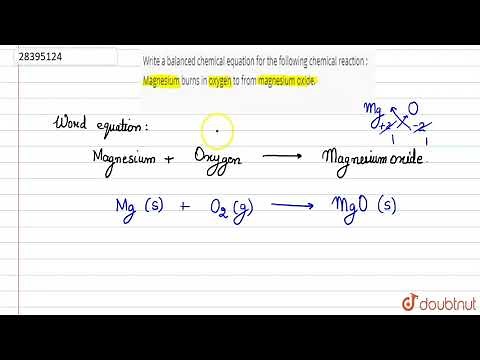 28395124
Write a balanced chemical equation for the following chemical reaction :
Magnesium burns in oxygen to from magnesium oxide.
Mg O
+2 -2
1 1
Word equation:
Magnesium + Oxygen ⟶ Magnesium oxide.
Mg (s) + O₂ (g) ⟶ MgO (s)
doubtnut